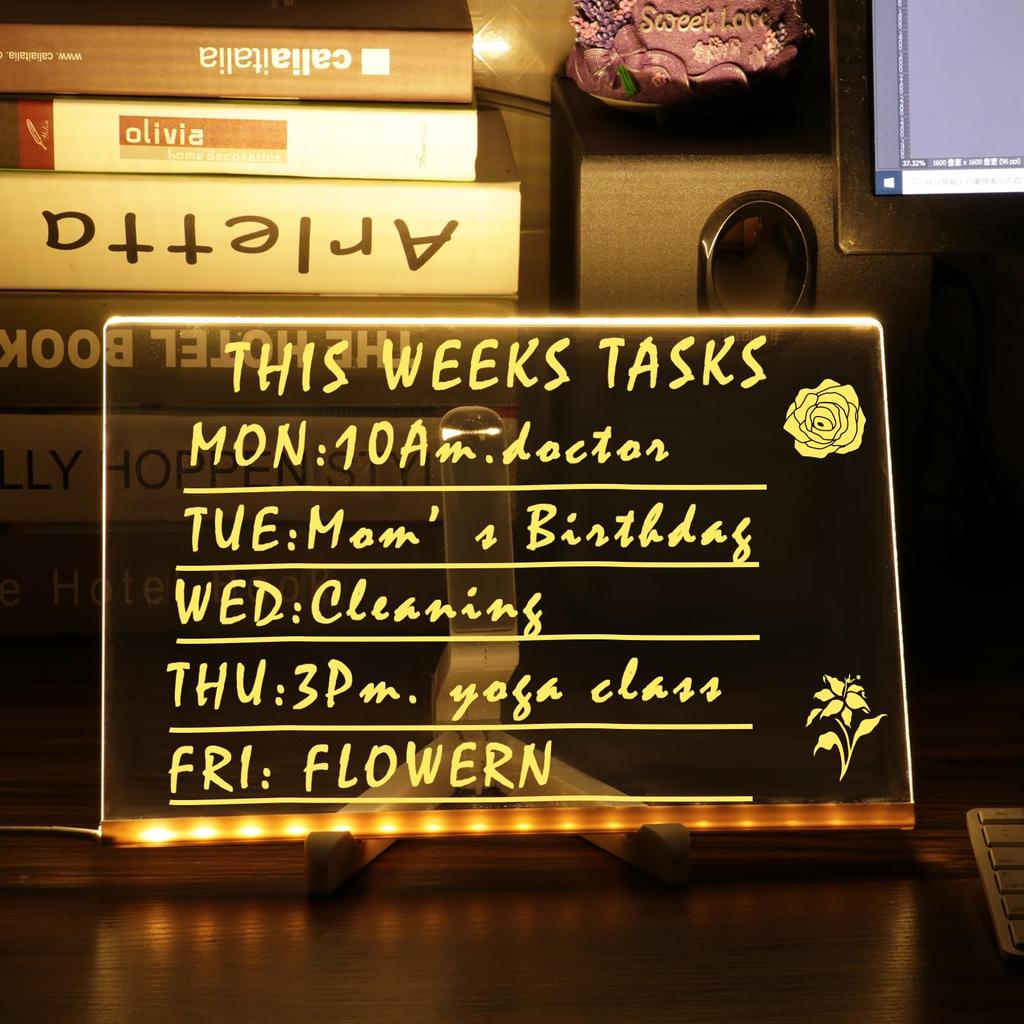 Sweet Love
caliaitalia
www.caliaitalia.
olivia
home decoration
Arletta
37.32% 1600 像素 x 1600 像素 (96 ppi)
THE HOTEL BOOK
LLY HOPPEN STYL
e Hotel Book
THIS WEEKS TASKS
MON:10Am.doctor
TUE:Mom's Birthdag
WED:Cleaning
THU:3Pm. yoga class
FRI: FLOWERN